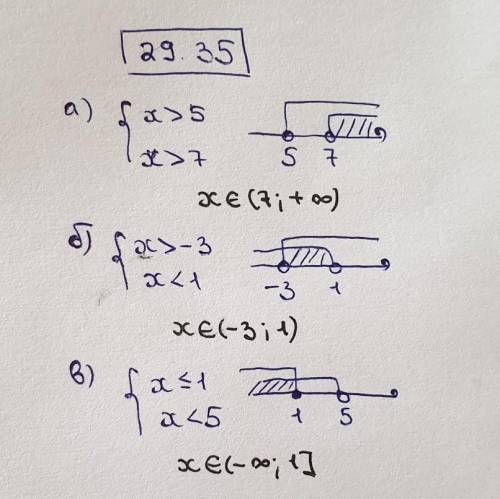 29.35
а) { x > 5
x > 7
5 7
x ∈ (7; + ∞)
б) { x > -3
x < 1
-3 1
x ∈ (-3; 1)
в) { x ≤ 1
x < 5
1 5
x ∈ (-∞; 1]